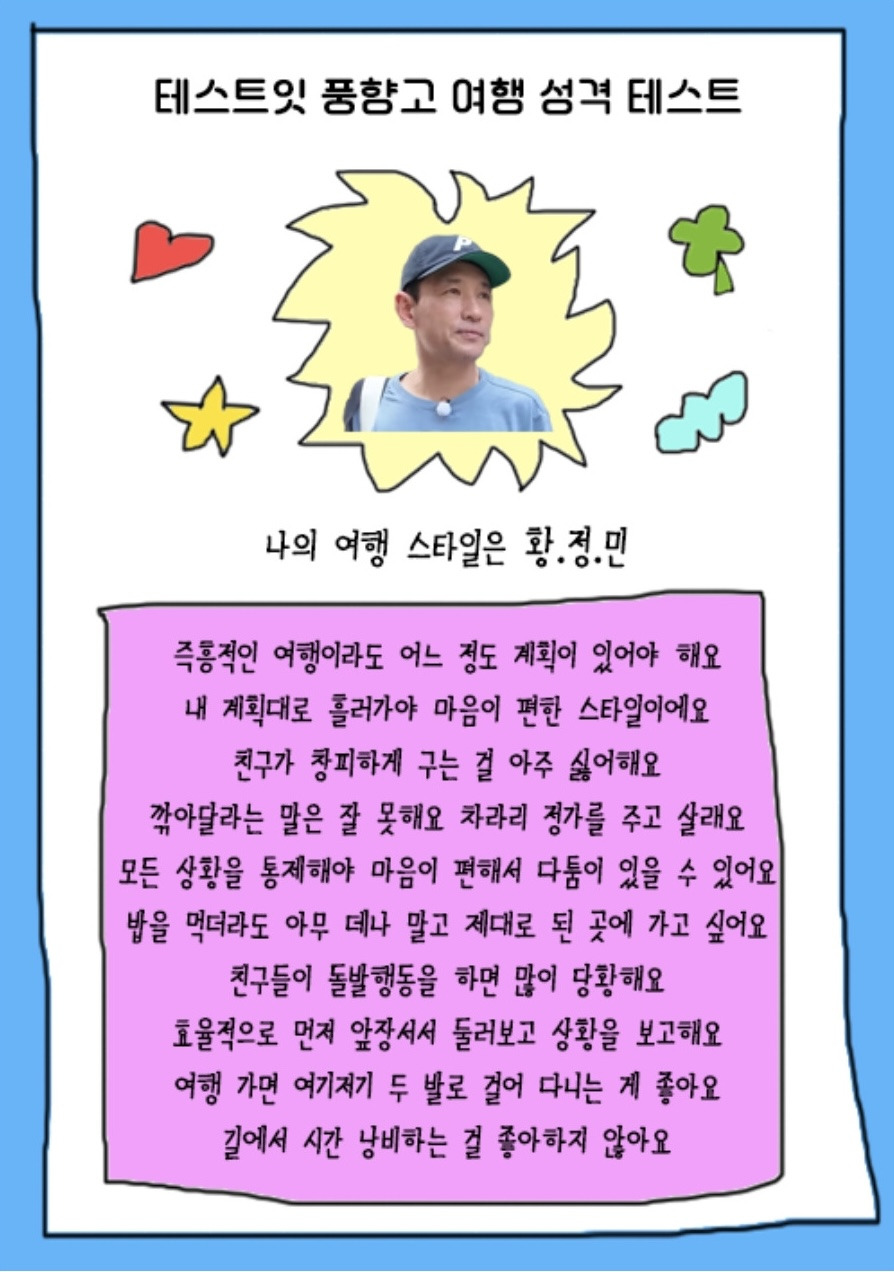 테스트잇 풍향고 여행 성격 테스트
P
나의 여행 스타일은 황.정.민
즉흥적인 여행이라도 어느 정도 계획이 있어야 해요
내 계획대로 흘러가야 마음이 편한 스타일이에요
친구가 창피하게 구는 걸 아주 싫어해요
깎아달라는 말은 잘 못해요 차라리 정가를 주고 살래요
모든 상황을 통제해야 마음이 편해서 다툼이 있을 수 있어요
밥을 먹더라도 아무 데나 말고 제대로 된 곳에 가고 싶어요
친구들이 돌발행동을 하면 많이 당황해요
효율적으로 먼저 앞장서서 둘러보고 상황을 보고해요
여행 가면 여기저기 두 발로 걸어 다니는 게 좋아요
길에서 시간 낭비하는 걸 좋아하지 않아요